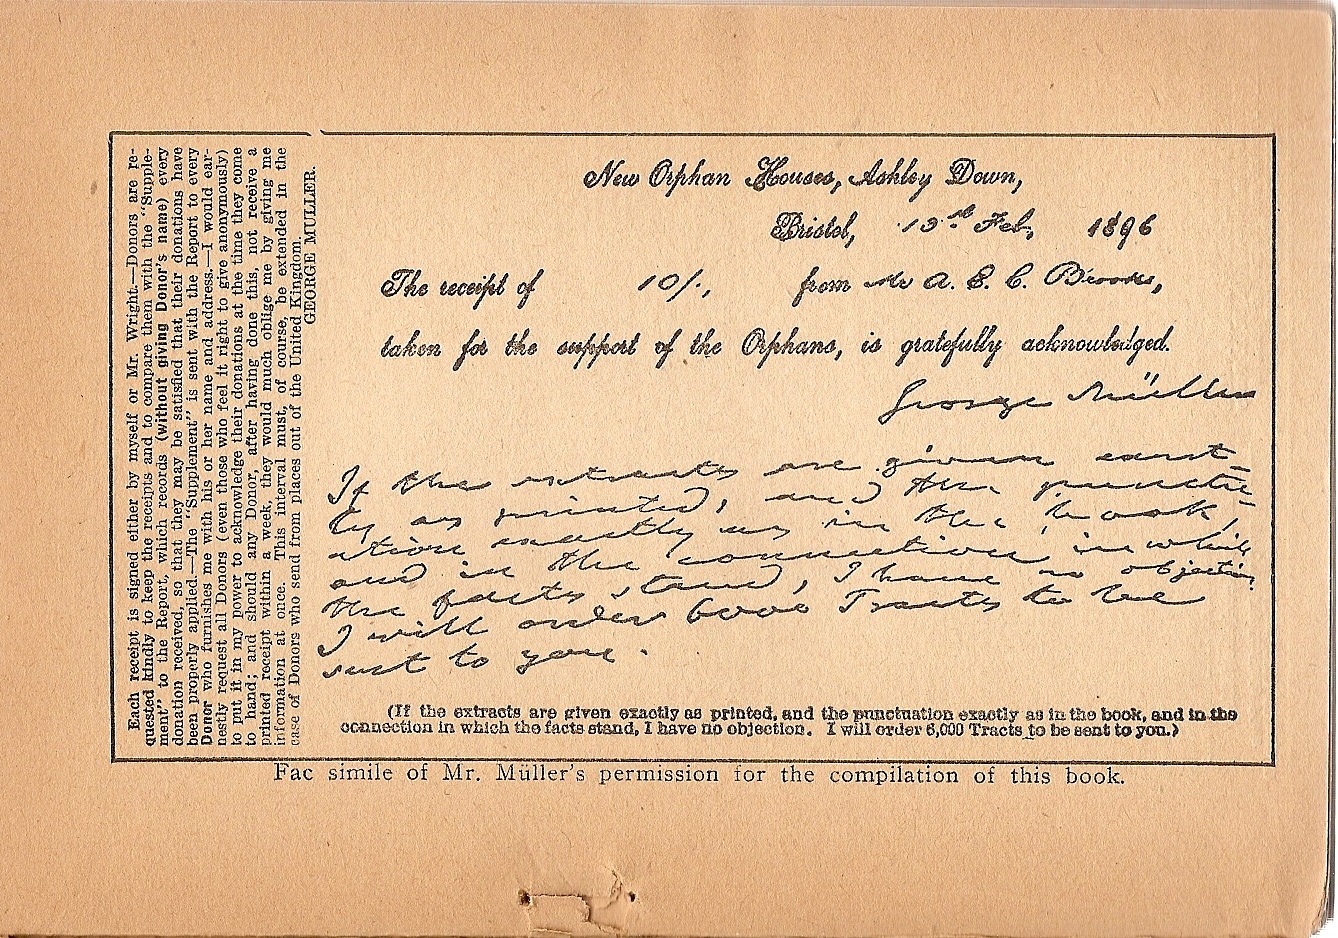 Each receipt is signed either by myself or Mr. Wright.—Donors are re-
quested kindly to keep the receipts and to compare them with the "Supple-
ment" to the Report, which records (without giving Donor's name) every
donation received, so that they may be satisfied that their donations have
been properly applied.—The "Supplement" is sent with the Report to every
Donor who furnishes me with his or her name and address.—I would ear-
nestly request all Donors (even those who feel it right to give anonymously)
to put it in my power to acknowledge their donations at the time they come
to hand; and should any Donor, after having done this, not receive a
printed receipt within a week, they would much oblige me by giving me
information at once. This interval must, of course, be extended in the
case of Donors who send from places out of the United Kingdom.
GEORGE MULLER.
New Orphan Houses, Ashley Down,
Bristol, Feb. 1896
The receipt of 10/-, from Mr A. E. C. Brooks,
taken for the support of the Orphans, is gratefully acknowledged.
George Müller
If the extracts are given exact-
ly as printed, and the punctu-
ation exactly as in the book,
and in the connection in which
the facts stand, I have no objection.
I will order 6000 Tracts to be
sent to you.
(If the extracts are given exactly as printed, and the punctuation exactly as in the book, and in the
connection in which the facts stand, I have no objection. I will order 6,000 Tracts to be sent to you.)
Fac simile of Mr. Müller's permission for the compilation of this book.